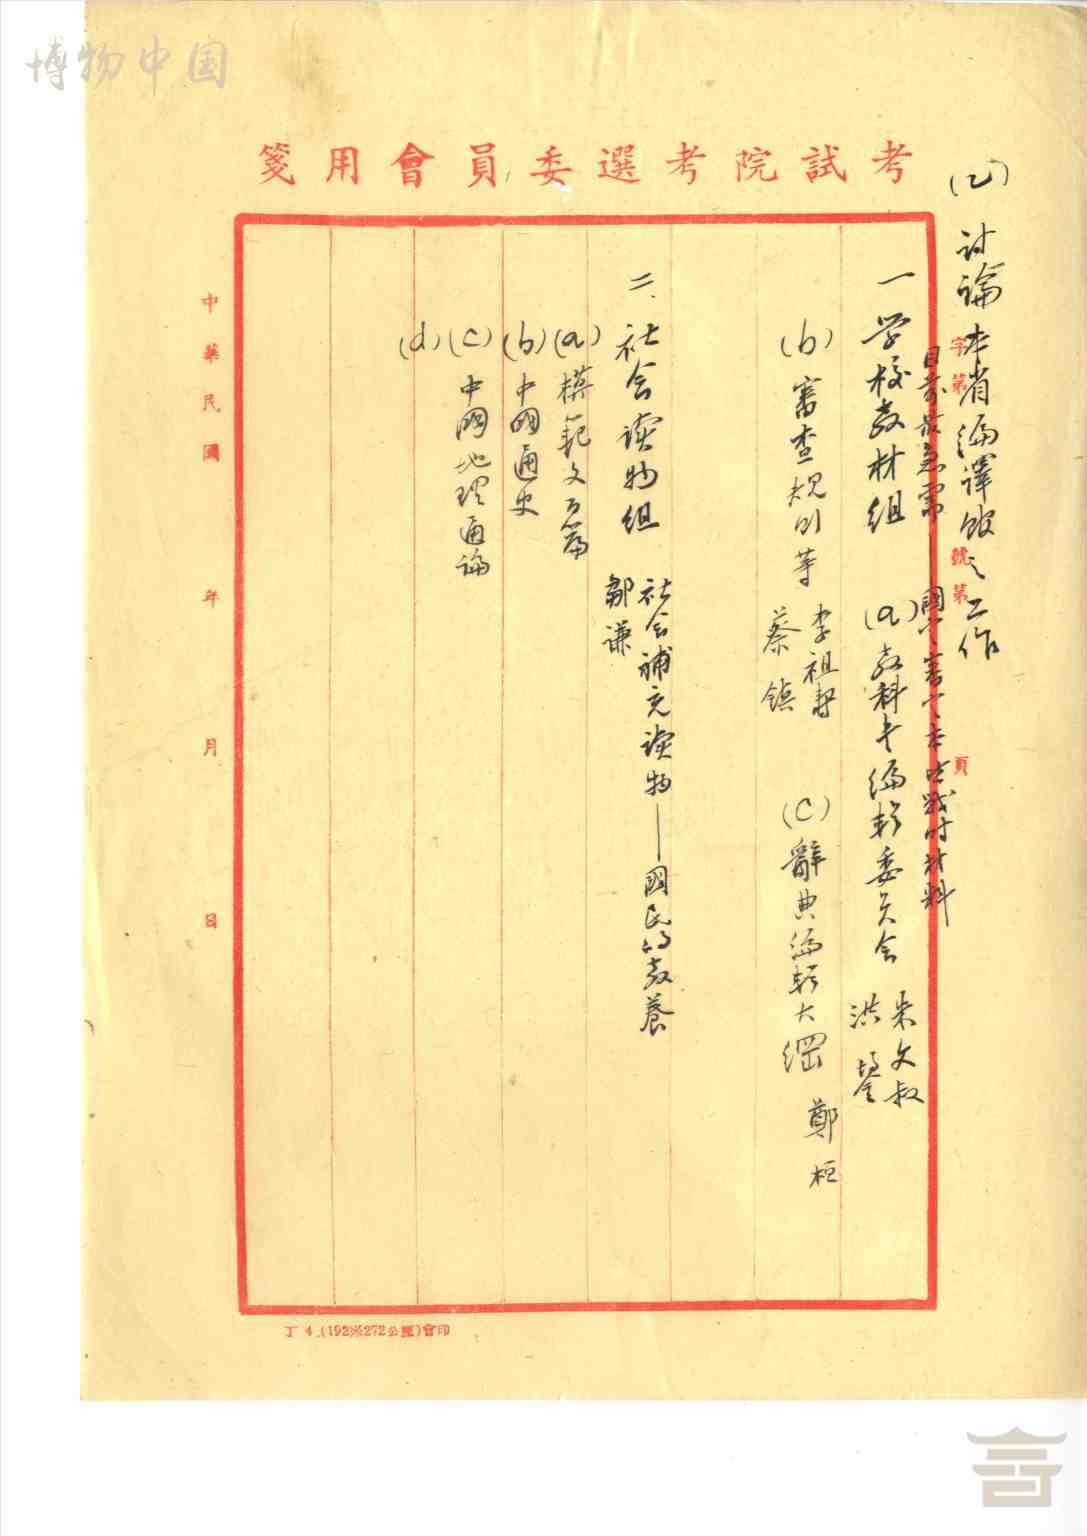 博物中国
考試院考選委員會用箋
字第 號第 頁
(乙) 討論本省編譯館之工作
目前最急需 國 战时材料
一 学校教材组 (a) 教科书編輯委员会 朱文叔 洪鋆
(b) 審查規则等 李祖壽 蔡鎮 (c) 辭典編輯大綱 鄭桓
二、社会读物组 社会補充读物——國民的教養 鄒谦
(a) 模範文百篇
(b) 中國通史
(c) 中國地理通論
(d)
中華民國 年 月 日
丁 4.(192×272公厘)會印